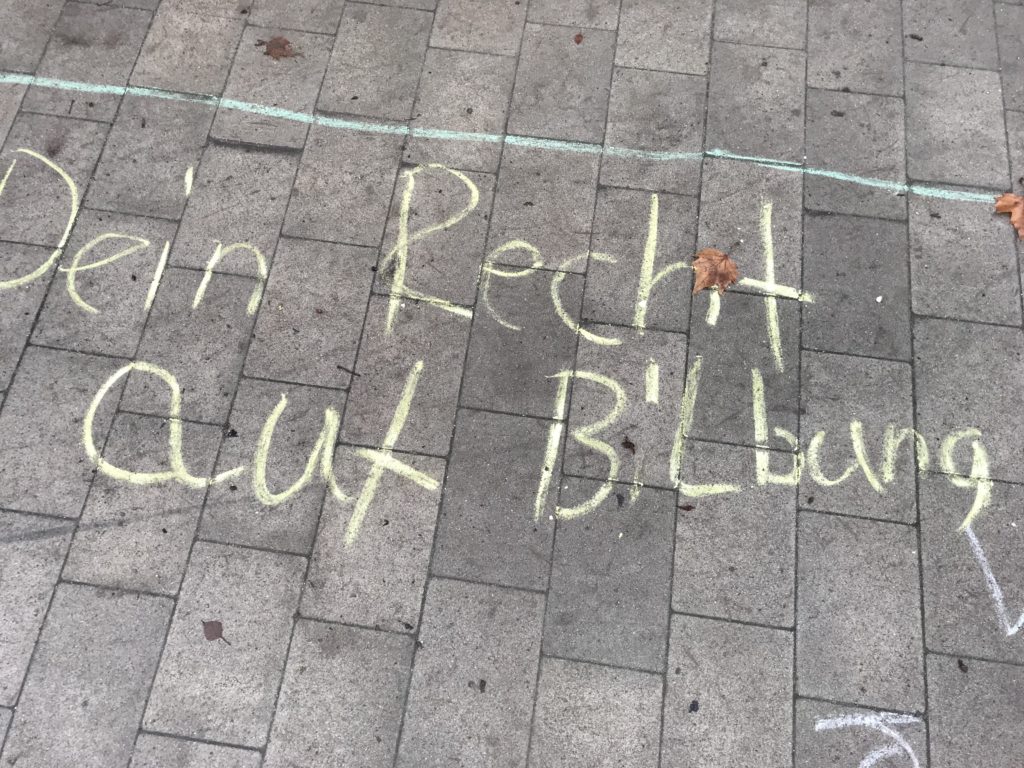 Dein Recht
auf BiLbung